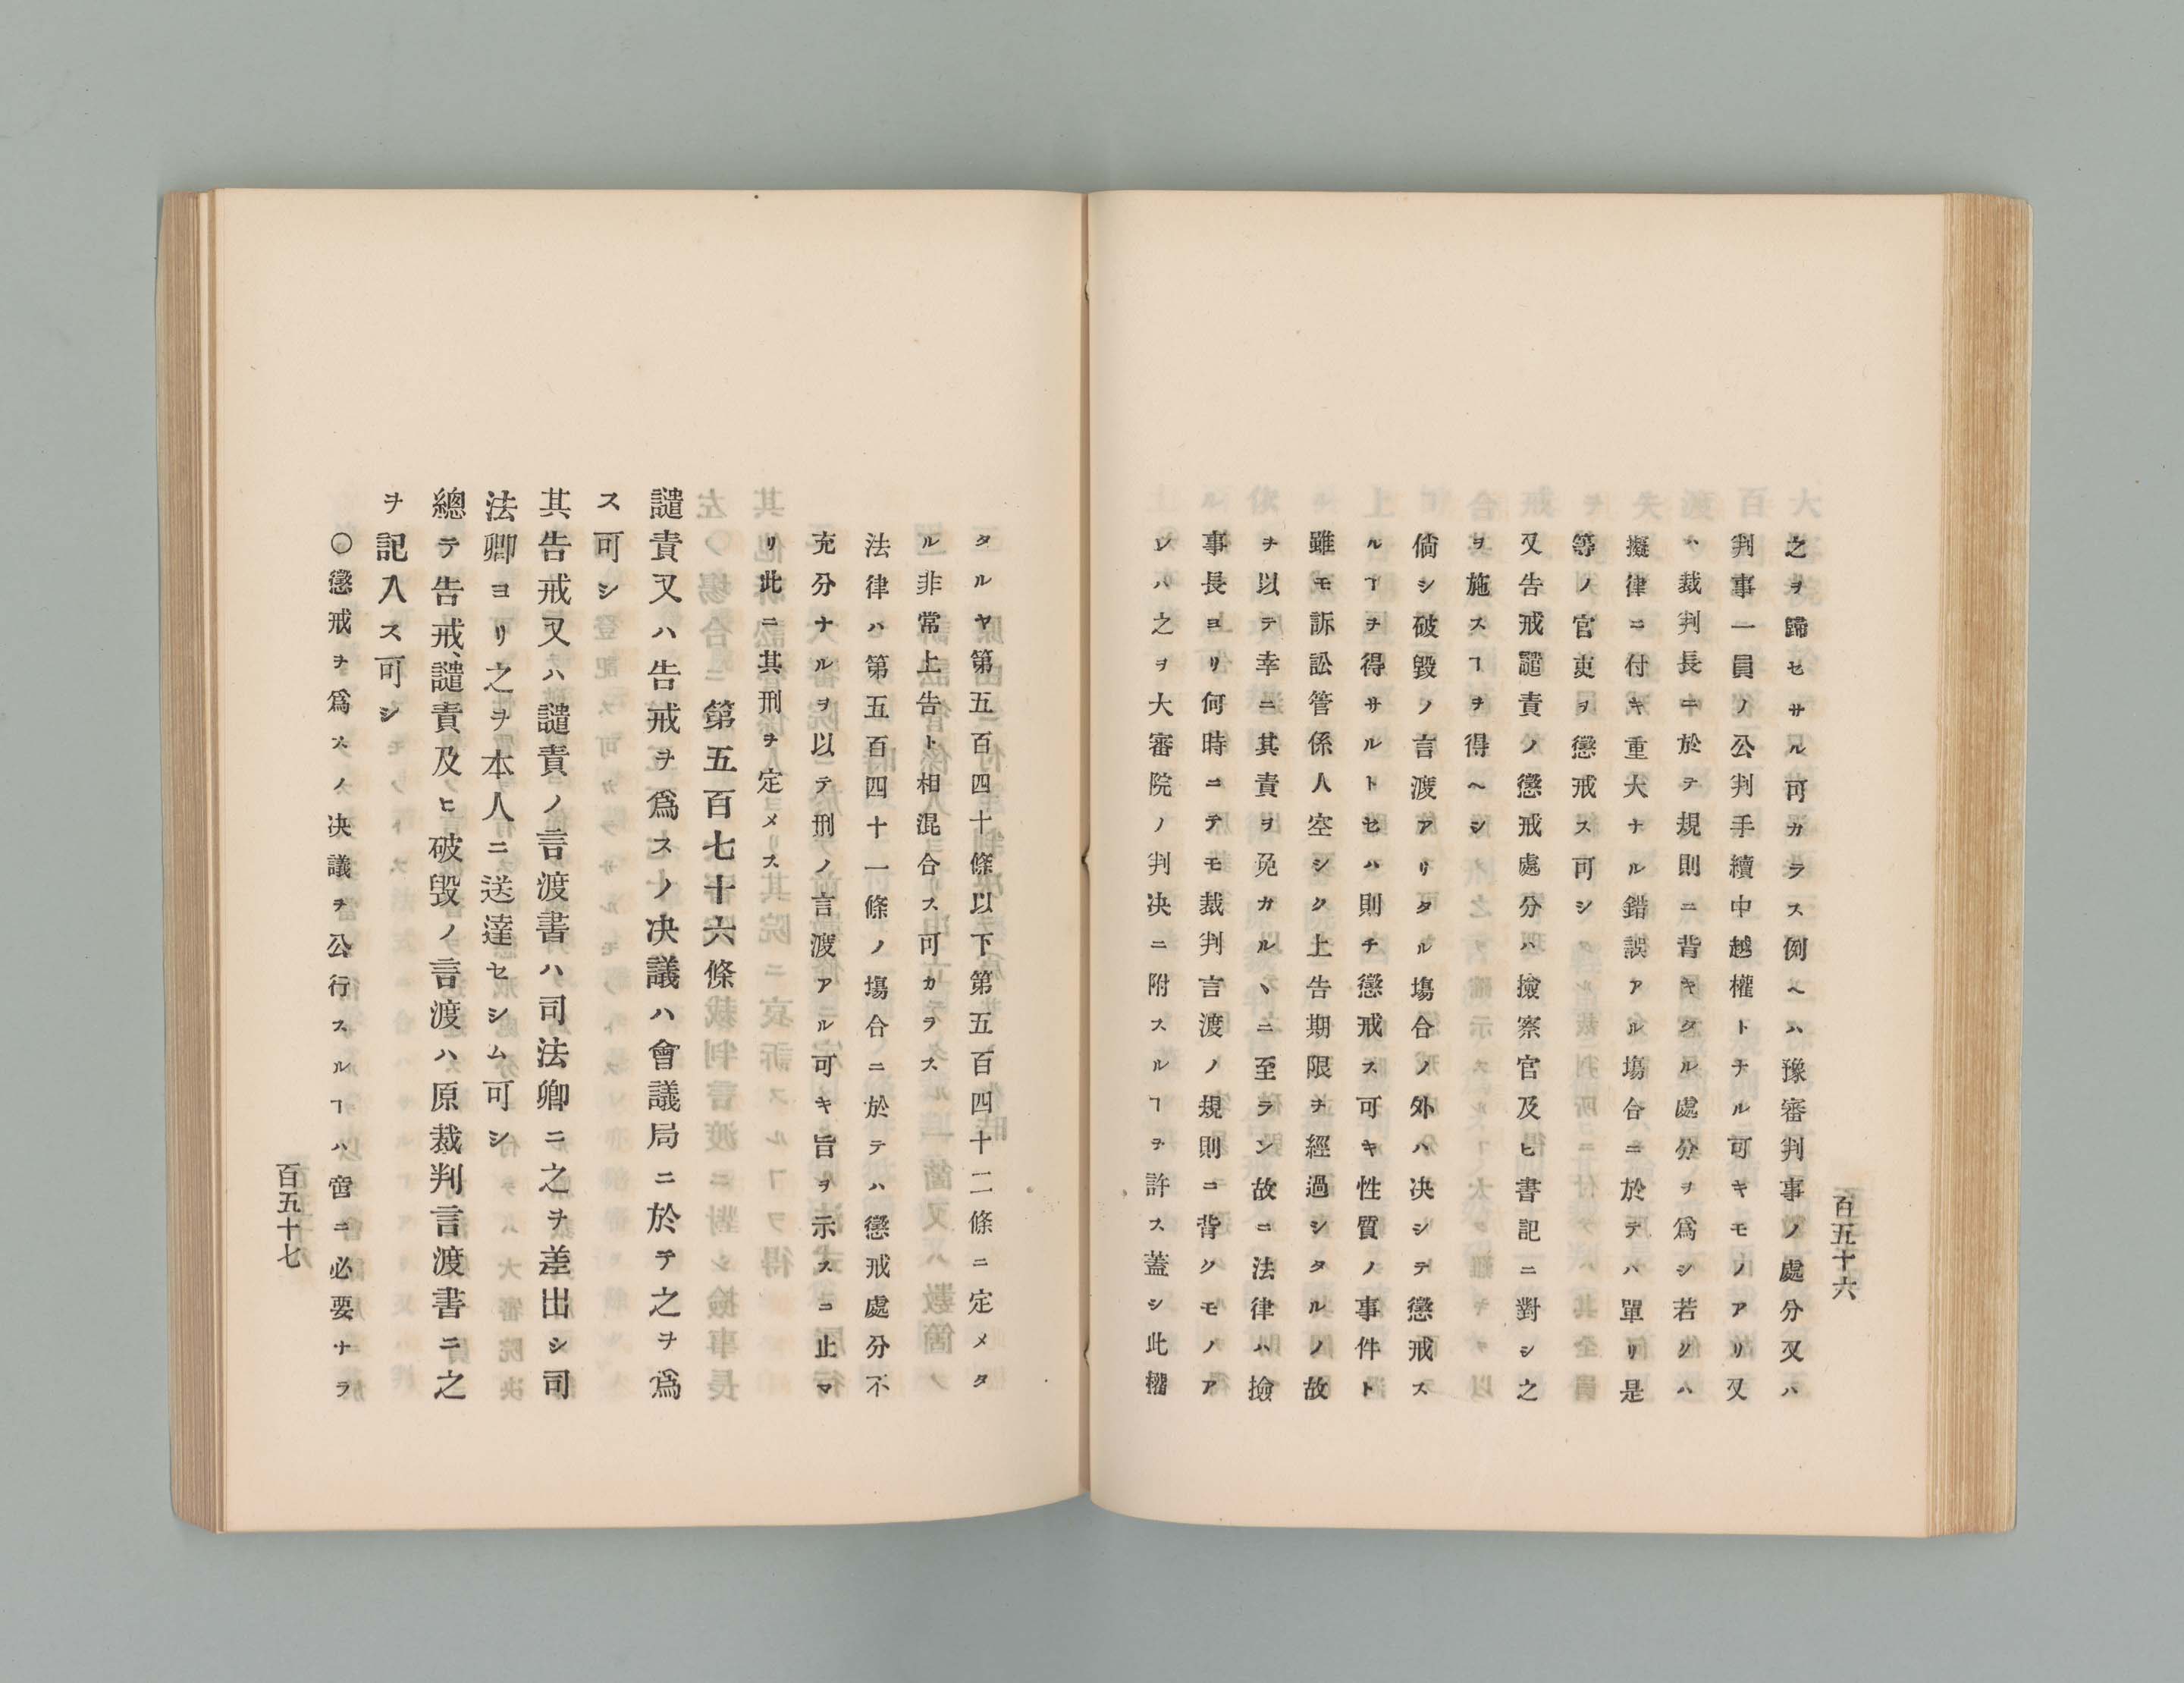 百五十六
之ヲ歸セサル可カラス例ヘハ豫審判事ノ處分又ハ
判事一員ノ公判手續中越權トナル可キモノアリ又
ハ裁判長ニ於テ規則ニ背キタル處分ヲ爲シ若クハ
擬律ニ付キ重大ナル錯誤アル塲合ニ於テハ單リ是
等ノ官吏ヲ懲戒ス可シ
又告戒譴責ノ懲戒處分ハ撿察官及ヒ書記ニ對シ之
ヲ施スヿヲ得ヘシ
倘シ破毀ノ言渡アリタル塲合ノ外ハ决シテ懲戒ス
ルヿヲ得サルトセハ則チ懲戒ス可キ性質ノ事件ト
雖モ訴訟管係人空シク上告期限ヲ經過シタルノ故
ヲ以テ幸ニ其責ヲ免カルヽニ至ラン故ニ法律ハ撿
事長ヨリ何時ニテモ裁判言渡ノ規則ニ背クモノア
レハ之ヲ大審院ノ判决ニ附スルヿヲ許ス蓋シ此權
タルヤ第五百四十條以下第五百四十二條ニ定メタ
ル非常上告ト相混合ス可カラス
法律ハ第五百四十一條ノ塲合ニ於テハ懲戒處分不
充分ナルヲ以テ刑ノ言渡アル可キ旨ヲ示スニ止マ
リ此ニ其刑ヲ定メス
第五百七十六條
譴責又ハ告戒ヲ爲スノ决議ハ會議局ニ於テ之ヲ爲
ス可シ
其告戒又ハ譴責ノ言渡書ハ司法卿ニ之ヲ差出シ司
法卿ヨリ之ヲ本人ニ送達セシム可シ
總テ告戒、譴責及ヒ破毀ノ言渡ハ原裁判言渡書ニ之
ヲ記入ス可シ
〇懲戒ヲ爲スノ决議ヲ公行スルヿハ啻ニ必要ナラ
百五十七